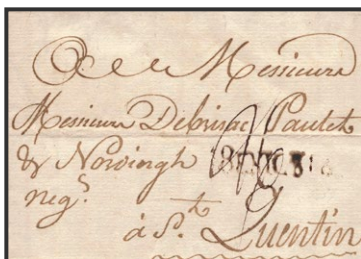 Messieurs
Messieurs Debrissac Paulet
& Nowingh
neg.s
à St. Quentin